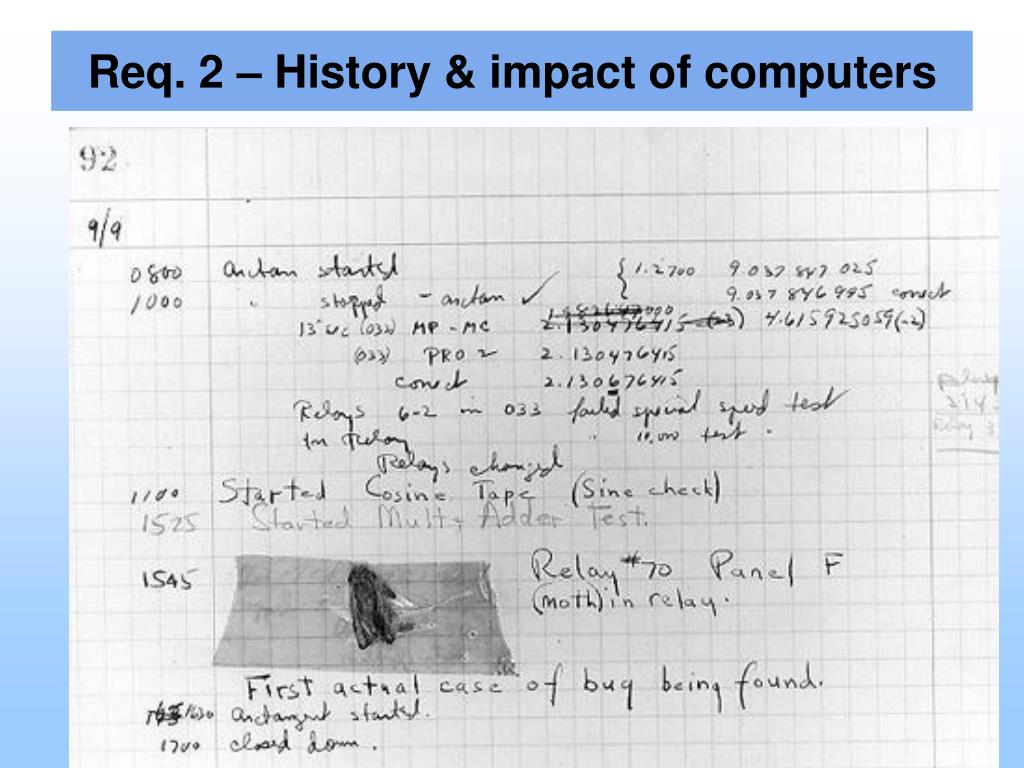 Req. 2 – History & impact of computers
92
9/9
0800 antan started { 1.2700 9.037 847 025
1000 " stopped - antan ✓ 9.037 846 995 correct
(032) MP - MC 2.130476415 (-3) 4.615925059(-2)
(033) PRO 2 2.130476415
correct 2.130676415
Relays 6-2 in 033 failed special speed test
in relay " 10.000 test .
Relays changed
Relay
1100 Started Cosine Tape (Sine check)
1525 Started Mult + Adder Test.
1545 Relay #70 Panel F
(moth) in relay.
First actual case of bug being found.
1630 antangent started.
1700 closed down.